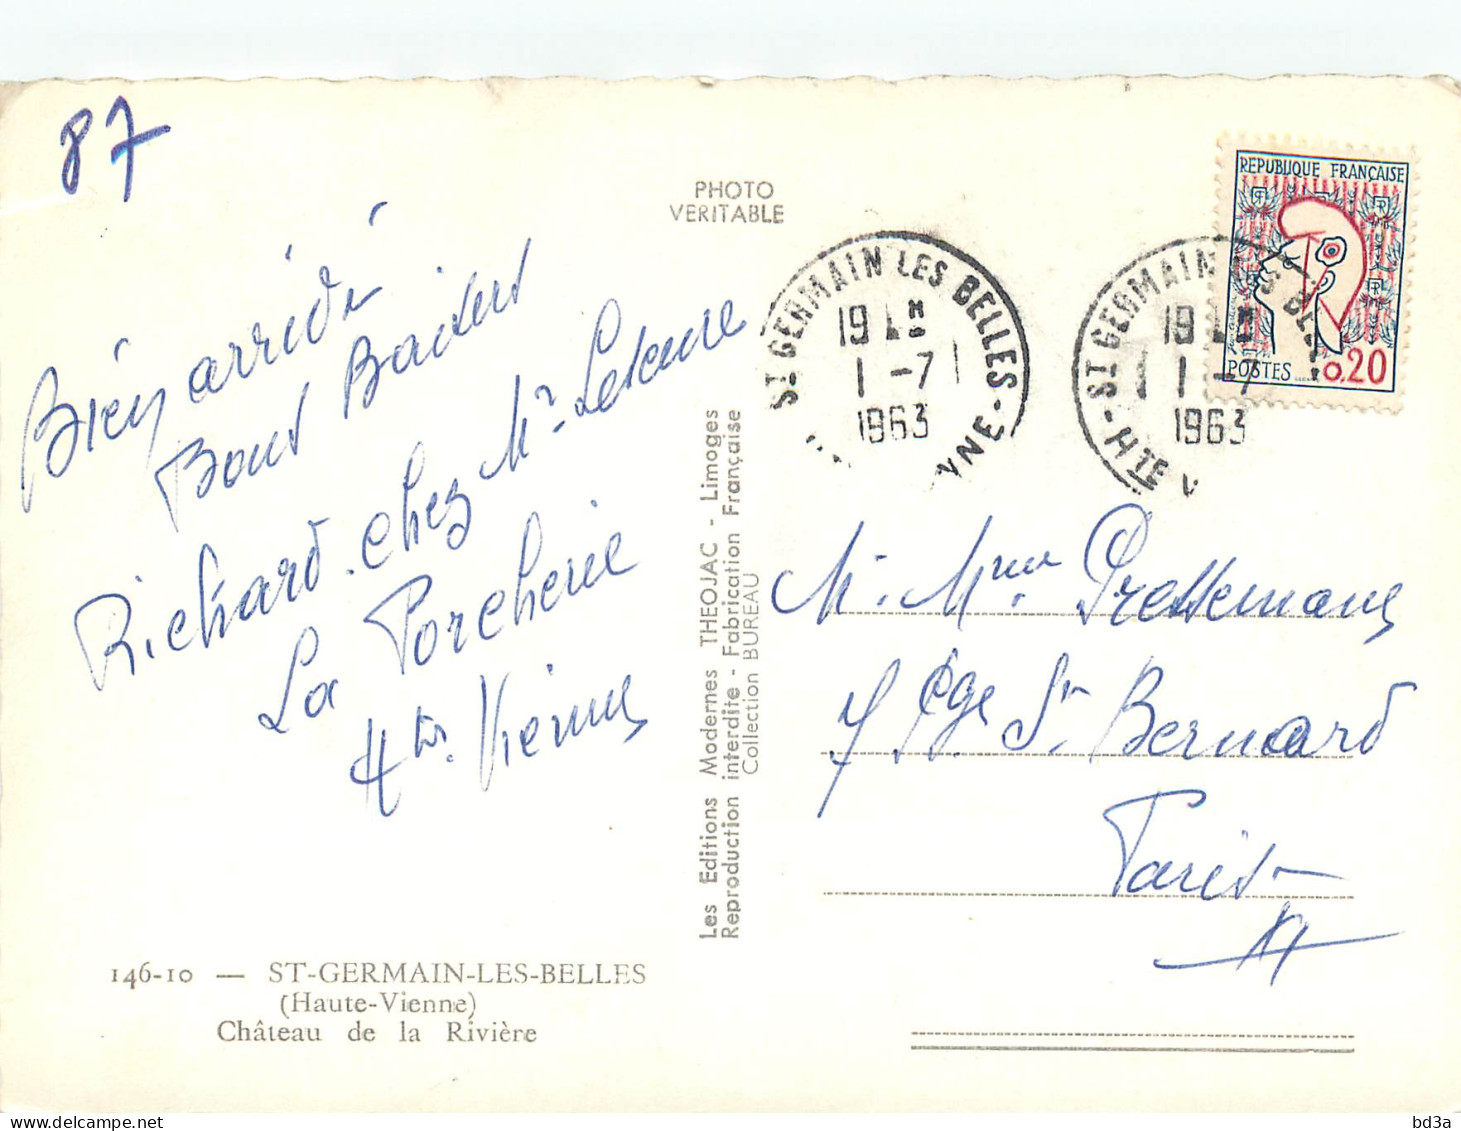 87
Bien arrivé
Bons Baisers
Richard. chez Mr
La Porcherie
Hte. Vienne
146-10 — ST-GERMAIN-LES-BELLES
(Haute-Vienne)
Château de la Rivière
PHOTO
VERITABLE
Les Editions Modernes THEOJAC - Limoges
Reproduction interdite - Fabrication Française
Collection BUREAU
ST GERMAIN LES BELLES
19 H
1 -7
1963
NNE
ST GERMAIN LES BELLES
19 H
1 -7
1963
HTE V
REPUBLIQUE FRANÇAISE
RF
POSTES
0,20
M. Mme. Pressemane
7 Pge St Bernard
Paris
XI
delcampe.net
bd3a